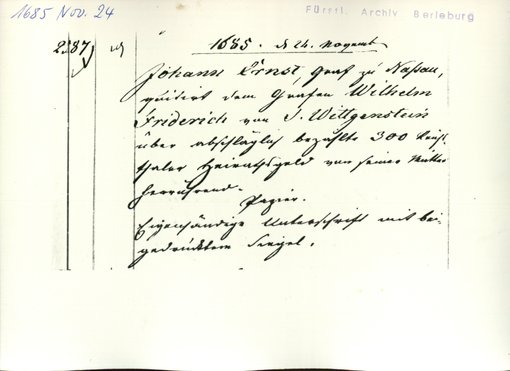 1685 Nov. 24
Fürstl. Archiv Berleburg
1685. d 24. Novembr
Johann Ernst, Graf zu Naßau,
quitirt dem Grafen Wilhelm
Friderich von S. Wittgenstein
über abschläglich bezahlte 300 Reichs
thaler Heirathsgeld von seiner Mutter
herrührend.
Papier.
Eigenhändige Unterschrift mit bei-
gedrücktem Siegel.